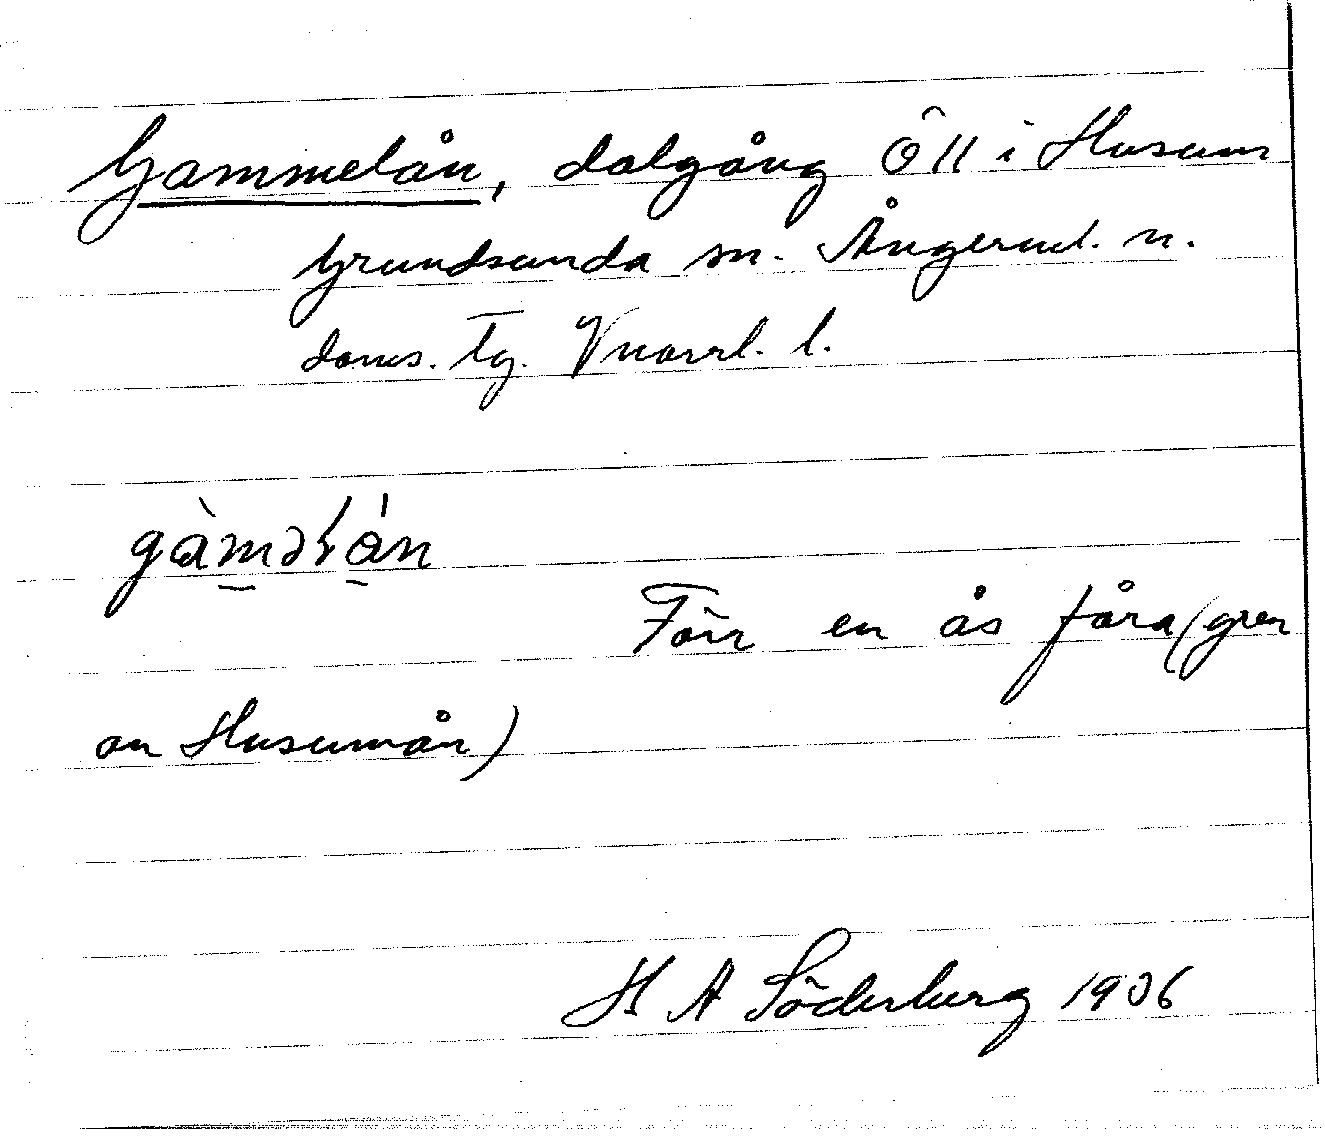 Gammelån, dalgång Ö 11 i Husum
Grundsunda sn. Ångerml. n.
doms. Tg. Vnorrl. l.
gàməłán
Förr en ås fåra (gren
av Husumån)
H A Söderberg 1936